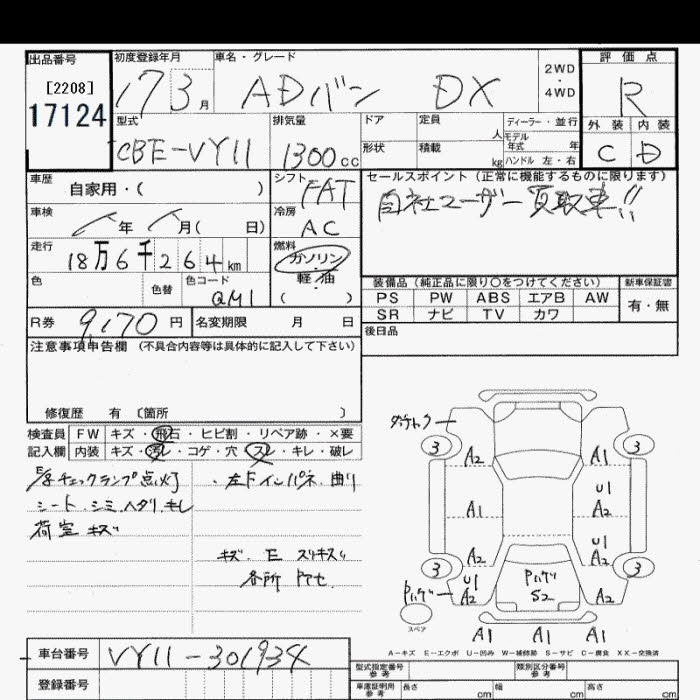 出品番号
[2208]
17124
初度登録年月
17 3月
車名・グレード
ADバン DX
2WD・4WD
評価点
R
外装 内装
C D
型式
CBE-VY11
排気量
1300cc
ドア
形状
定員 人
積載 kg
ディーラー・並行
モデル年式 年
ハンドル 左・右
車歴
自家用・( )
シフト
FAT
セールスポイント(正常に機能するものに限ります)
自社ユーザー買取車!!
車検
年 月( 日)
冷房
AC
走行
18万6千264km
燃料
ガソリン・軽油
( )
色
色替
色コード
QM1
装備品(純正品に限り〇をつけてください)
新車保証書
PS PW ABS エアB AW
有・無
SR ナビ TV カワ
R券
9,170円
名変期限 月 日
後日品
注意事項申告欄(不具合内容等は具体的に記入して下さい)
修復歴 有 〔箇所 〕
検査員記入欄
FW キズ・飛石・ヒビ割・リペア跡・×要
内装 キズ・汚レ・コゲ・穴・スレ・キレ・破レ
チェックランプ点灯
シート シミ ヘタリ キレ
荷室 キズ
・左Fインパネ 曲り
キズ E スリキズ
各所
3 A2 A1 3
A1 U1 A2
A2 U1 A2
3 U1 A2 S2 A2 3
スペア
A1 A1 A1
A-キズ E-エクボ U-凹み W-補修跡 S-サビ C-腐食 XX-交換済
車台番号
VY11-301934
登録番号
型式指定番号 参考
類別区分番号 参考
車庫証明用 参考
長さ cm 幅 cm 高さ cm